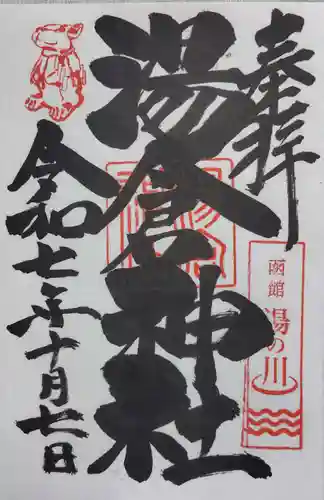 奉拝
湯倉神社
令和七年十月七日
函館
湯の川